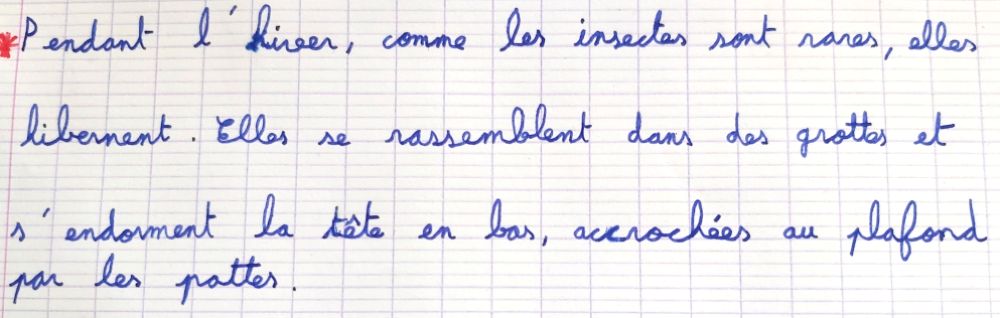 *Pendant l'hiver, comme les insectes sont rares, elles
hibernent. Elles se rassemblent dans des grottes et
s'endorment la tête en bas, accrochées au plafond
par les pattes.